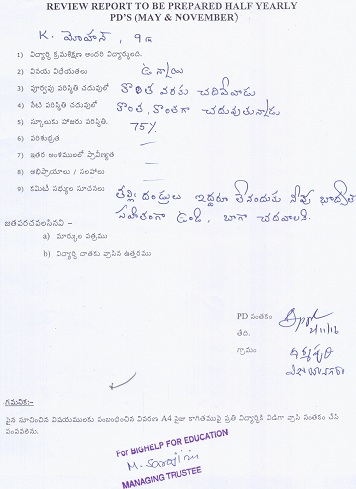 REVIEW REPORT TO BE PREPARED HALF YEARLY
PD'S (MAY & NOVEMBER)
K. మోహన్,
1) విద్యార్థి క్రమశిక్షణ అందరి విద్యార్థులంది.
2) వినయ విధేయతలు ఉన్నాయి
3) పూర్వపు పరిస్థితి చదువులో కొంత వరకు చదివేవాడు
4) నేటి పరిస్థితి చదువులో కొంత, కొంతగా చదువుతున్నాడు
5) స్కూలుకు హాజరు పరిస్థితి. 75%
6) పరిశుభ్రత
7) ఇతర అంశములలో ప్రావీణ్యత
8) అభిప్రాయాలు / సలహాలు
9) కమిటీ సభ్యుల సూచనలు తల్లి దండ్రులు ఇద్దరూ లేనందుకు నీవు
ఉండి, బాగా చదవాలి.
జతపరచవలసినవి -
a) మార్కుల పత్రము
b) విద్యార్థి దాతకు వ్రాసిన ఉత్తరము
PD సంతకం
తేది.
గ్రామం
గమనిక:-
పైన సూచించిన విషయములకు సంబంధించిన వివరణ A4 సైజు కాగితముపై ప్రతి విద్యార్థికి విడిగా వ్రాసి సంతకం చేసి
పంపవలెను.
For BIGHELP FOR EDUCATION
MANAGING TRUSTEE